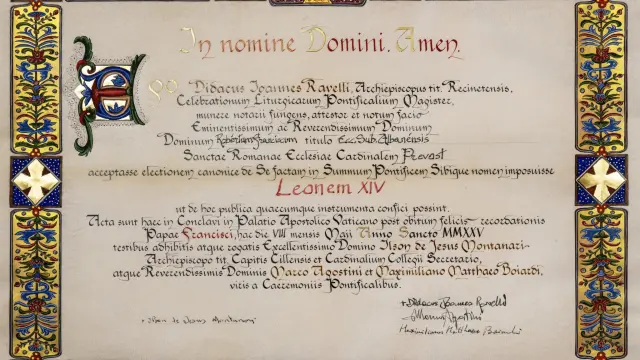 In nomine Domini. Amen.
Ego Didacus Ioannes Ravelli, Archiepiscopus tit. Recinetensis,
Celebrationum Liturgicarum Pontificalium Magister,
munere notarii fungens, attestor et notum facio
Eminentissimum ac Reverendissimum Dominum
Dominum Robertum Franciscum titulo Ecc. Sub. Albanensis
Sanctae Romanae Ecclesiae Cardinalem Prevost
acceptasse electionem canonice de Se factam in Summum Pontificem Sibique nomen imposuisse
Leonem XIV
ut de hoc publica quaecumque instrumenta confici possint.
Acta sunt haec in Conclavi in Palatio Apostolico Vaticano post obitum felicis recordationis
Papae Francisci, hac die VIII mensis Maii Anno Sancto MMXXV
testibus adhibitis atque rogatis Excellentissimo Domino Ilson de Jesus Montanari
Archiepiscopo tit. Capitis Cillensis et Cardinalium Collegii Secretario,
atque Reverendissimis Dominis Marco Agostini et Maximiliano Matthaeo Boiardi,
viris a Caeremoniis Pontificalibus.
+ Didacus Ioannes Ravelli
+ Ilson de Jesus Montanari